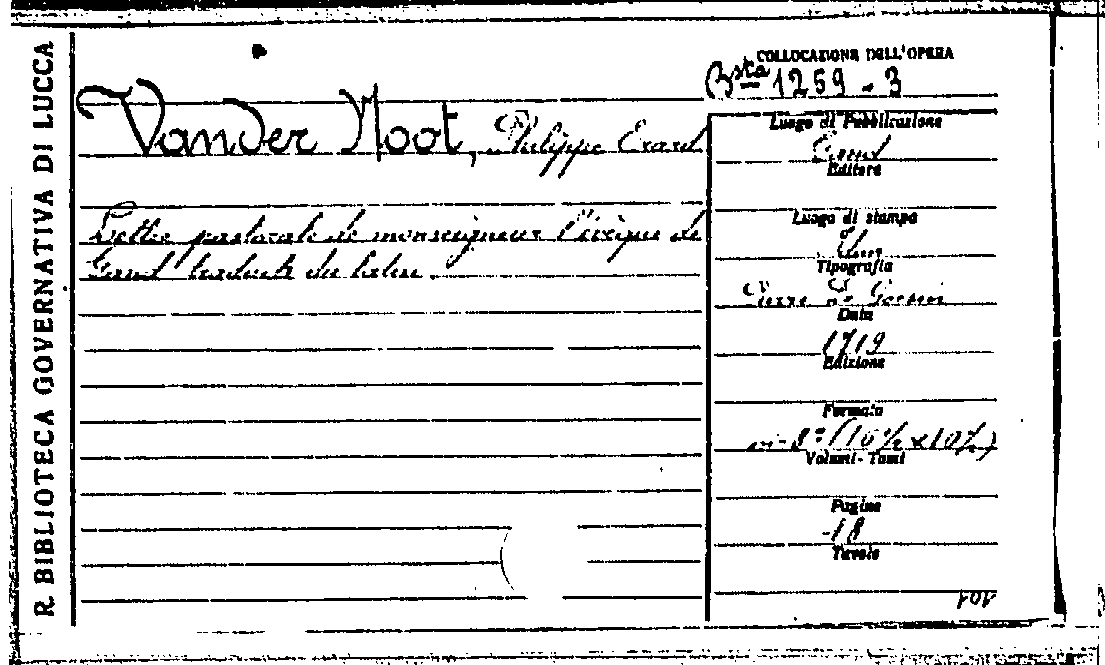 R. BIBLIOTECA GOVERNATIVA DI LUCCA
COLLOCAZIONE DELL'OPERA
Bsta 1259 - 3
Vander Noot, Philippe Erard
Lettre pastorale de monseigneur l'évêque de
Gand traduite du latin.
Luogo di Pubblicazione
Gand
Editore
Luogo di stampa
Tipografia
Pierre de Goesin
Data
1719
Edizione
Formato
in-8° (16½ x 10½)
Volumi - Tomi
Pagine
-18
Tavole
101